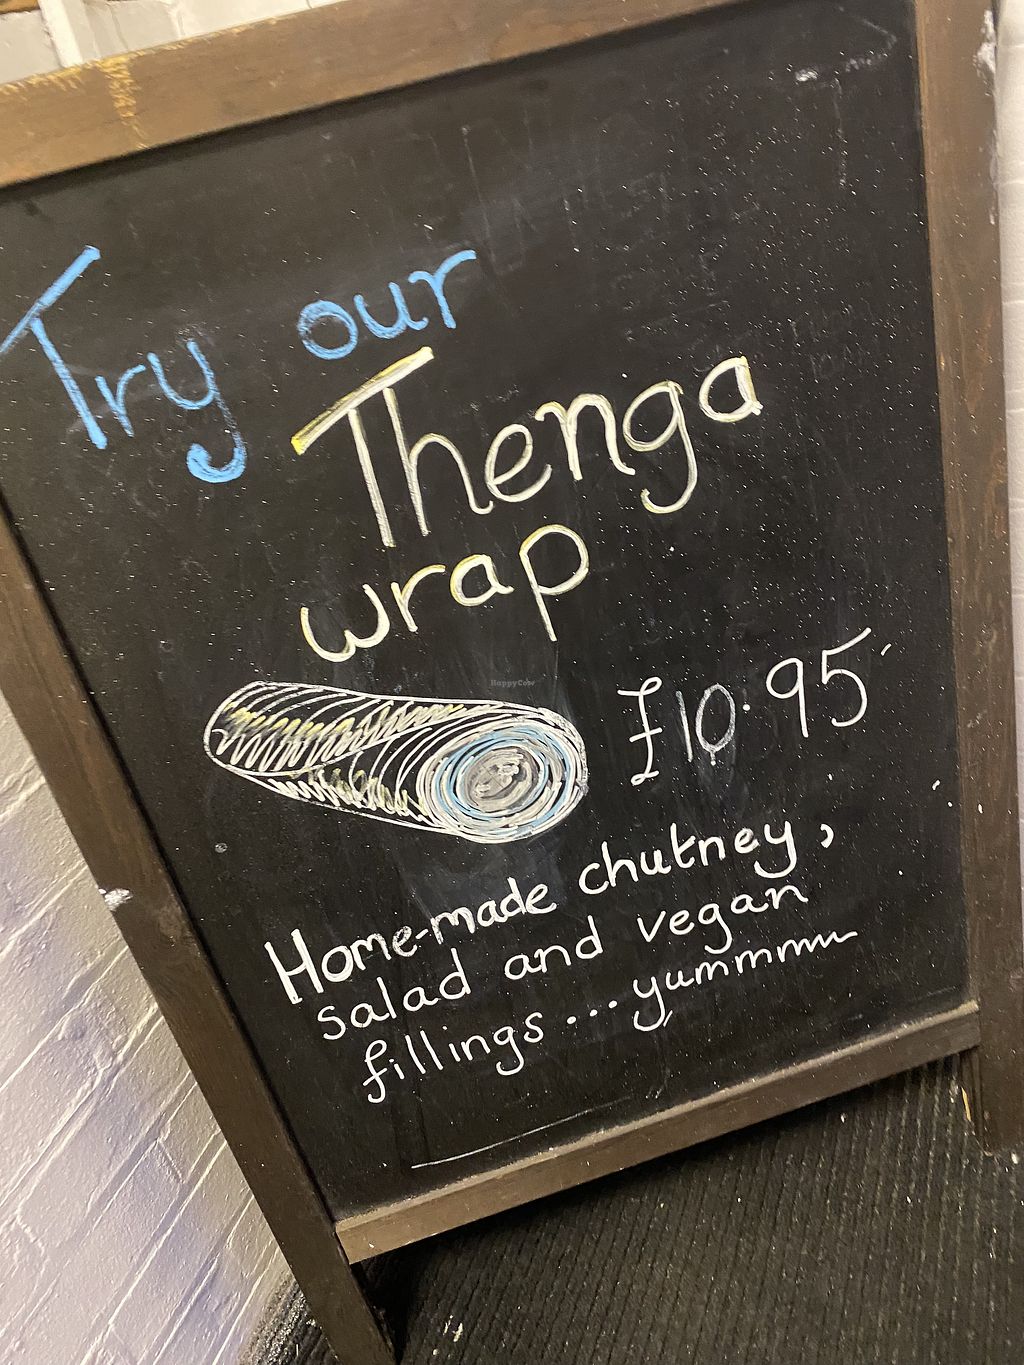 Try our
Thenga
wrap
HappyCow
£10.95
Home-made chutney,
salad and vegan
fillings...yummmm